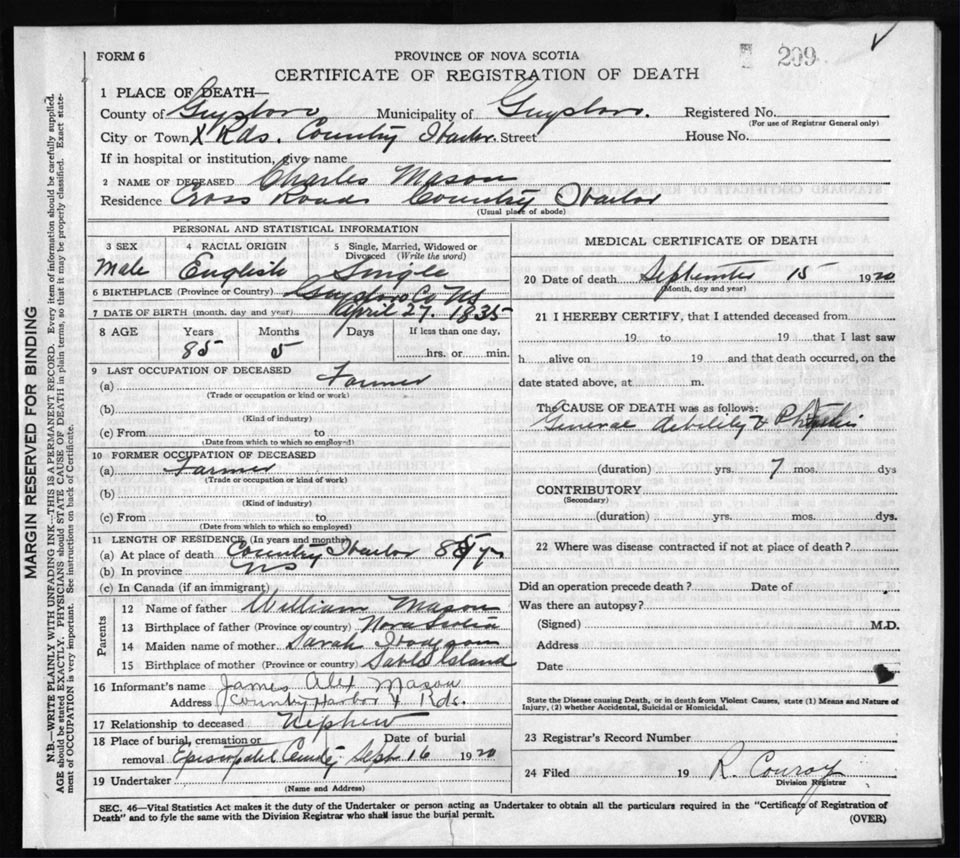 FORM 6
PROVINCE OF NOVA SCOTIA
209
CERTIFICATE OF REGISTRATION OF DEATH
1 PLACE OF DEATH—
County of Guysboro Municipality of Guysboro. Registered No.
(For use of Registrar General only)
City or Town X Rds. Country Harbor. Street House No.
If in hospital or institution, give name
2 NAME OF DECEASED Charles Mason
Residence Cross Roads Country Harbor
(Usual place of abode)
PERSONAL AND STATISTICAL INFORMATION
3 SEX 4 RACIAL ORIGIN 5 Single, Married, Widowed or Divorced (Write the word)
Male English Single
6 BIRTHPLACE (Province or Country) Guysboro Co NS
7 DATE OF BIRTH (month, day and year) April 27. 1835
8 AGE Years Months Days If less than one day,
85 5 hrs. or min.
9 LAST OCCUPATION OF DECEASED
(a) Farmer
(Trade or occupation or kind or work)
(b)
(Kind of industry)
(c) From to
(Date from which to which so employed)
10 FORMER OCCUPATION OF DECEASED
(a) Farmer
(Trade or occupation or kind of work)
(b)
(Kind of industry)
(c) From to
(Date from which to which so employed)
11 LENGTH OF RESIDENCE (In years and months)
(a) At place of death Country Harbor 85 yrs
(b) In province NS
(c) In Canada (if an immigrant)
Parents
12 Name of father William Mason
13 Birthplace of father (Province or country) Nova Scotia
14 Maiden name of mother Sarah Hodgson
15 Birthplace of mother (Province or country) Sable Island
16 Informant's name James Alex Mason
Address Country Harbor X Rds.
17 Relationship to deceased Nephew
18 Place of burial, cremation or removal Date of burial
Episcopalel Cemty. Sept 16 1920
19 Undertaker
(Name and Address)
MEDICAL CERTIFICATE OF DEATH
20 Date of death September 15 1920
(Month, day and year)
21 I HEREBY CERTIFY, that I attended deceased from
19 to 19 that I last saw
h alive on 19 and that death occurred, on the
date stated above, at m.
The CAUSE OF DEATH was as follows:
General debility &
(duration) yrs. 7 mos. dys
CONTRIBUTORY
(Secondary)
(duration) yrs. mos. dys.
22 Where was disease contracted if not at place of death?
Did an operation precede death? Date of
Was there an autopsy?
(Signed) M.D.
Address
Date
State the Disease causing Death, or in death from Violent Causes, state (1) Means and Nature of
Injury, (2) whether Accidental, Suicidal or Homicidal.
23 Registrar's Record Number
24 Filed 19 R. Conroy
Division Registrar
SEC. 46—Vital Statistics Act makes it the duty of the Undertaker or person acting as Undertaker to obtain all the particulars required in the "Certificate of Registration of
Death" and to fyle the same with the Division Registrar who shall issue the burial permit.
(OVER)
MARGIN RESERVED FOR BINDING
N.B.—WRITE PLAINLY WITH UNFADING INK—THIS IS A PERMANENT RECORD. Every item of information should be carefully supplied.
AGE should be stated EXACTLY. PHYSICIANS should STATE CAUSE OF DEATH in plain terms, so that it may be properly classified. Exact state-
ment of OCCUPATION is very important. See instructions on back of Certificate.